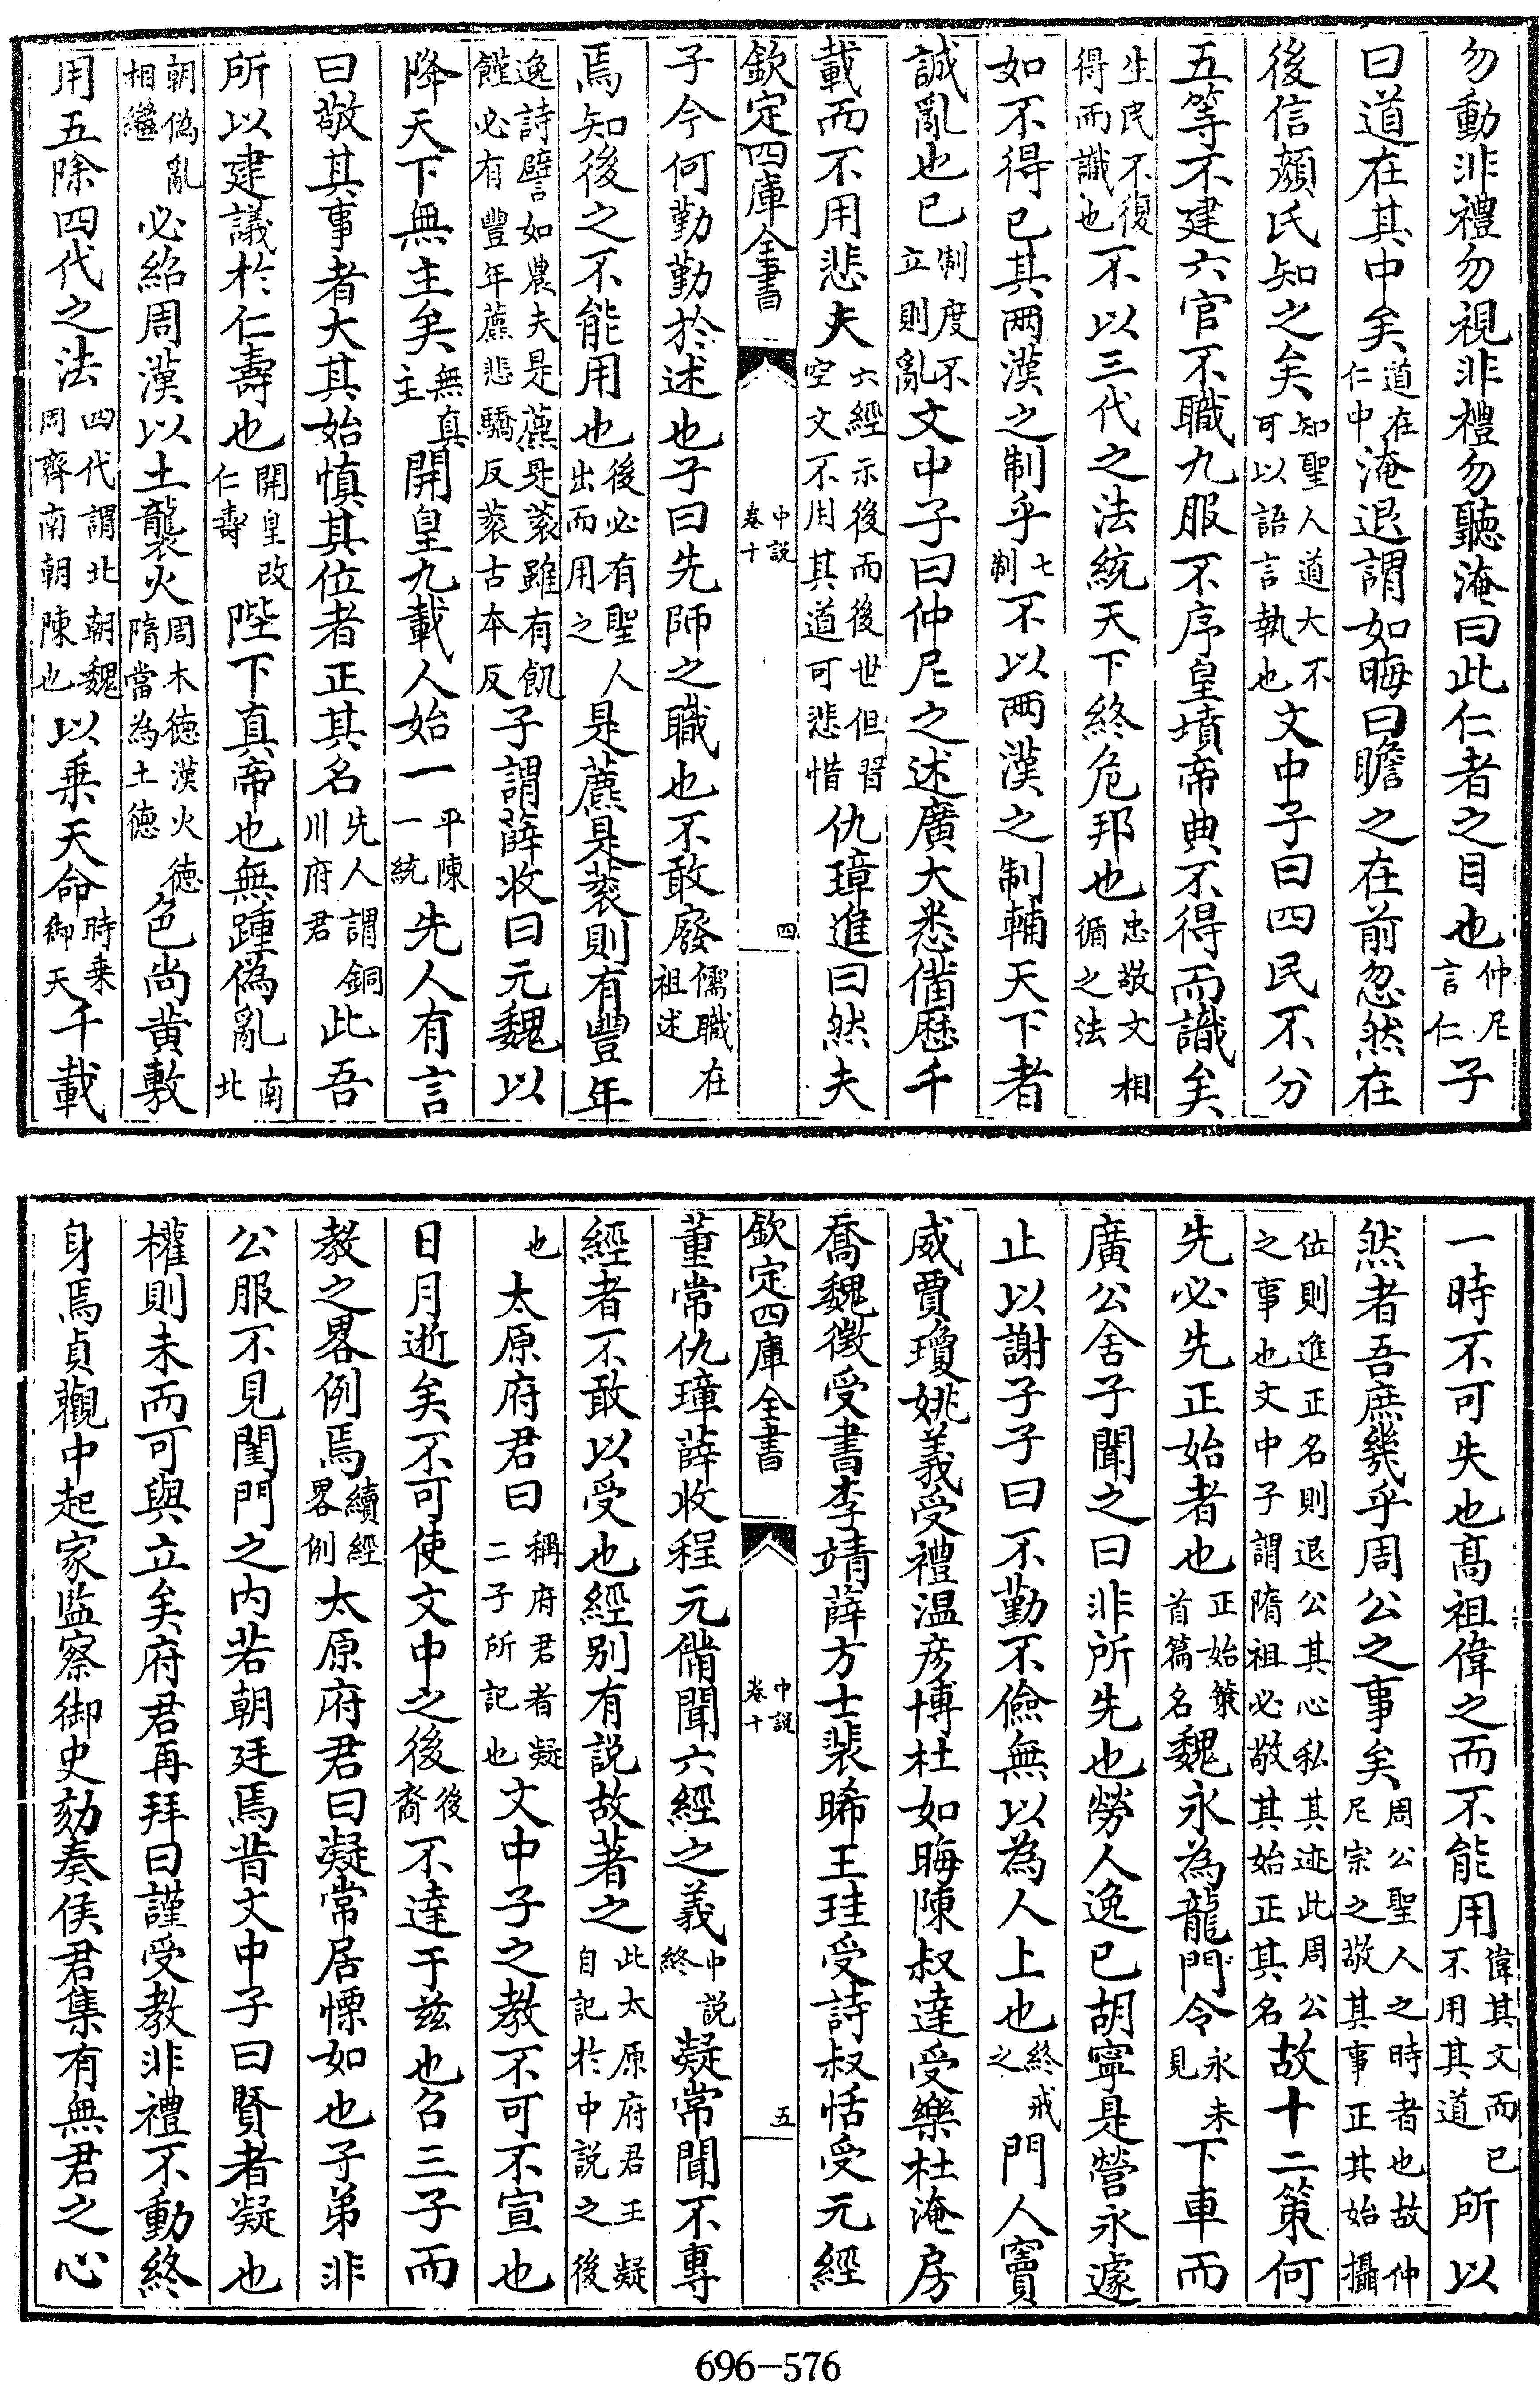 勿動非禮勿視非禮勿聽淹曰此仁者之目也仲尼言仁子
曰道在其中矣道在仁中淹退謂如晦曰瞻之在前忽然在
後信顔氏知之矣知聖人道大不可以語言執也文中子曰四民不分
五等不建六官不職九服不序皇墳帝典不得而識矣
生民不復得而識也不以三代之法統天下終危邦也忠敬文相循之法
如不得已其兩漢之制乎七制不以兩漢之制輔天下者
誠亂也已制度不立則亂文中子曰仲尼之述廣大悉備歴千
載而不用悲夫六經示後而後世但習空文不用其道可悲惜仇璋進曰然夫
欽定四庫全書 中説卷十 四
子今何勤勤於述也子曰先師之職也不敢廢儒職在祖述
焉知後之不能用也後必有聖人出而用之是藨是蔉則有豐年
逸詩譬如農夫是藨是蔉雖有飢饉必有豐年藨悲驕反蔉古本反子謂薛收曰元魏以
降天下無主矣無真主開皇九載人始一平陳一統先人有言
曰敬其事者大其始慎其位者正其名先人謂銅川府君此吾
所以建議於仁壽也開皇改仁壽陛下真帝也無踵偽亂南北
朝偽亂相繼必紹周漢以土襲火周木徳漢火徳隋當為土徳色尚黄數
用五除四代之法四代謂北朝魏周齊南朝陳也以乗天命時乗御天千載
一時不可失也髙祖偉之而不能用偉其文而已不用其道所以
然者吾庶幾乎周公之事矣周公聖人之時者也故仲尼宗之敬其事正其始攝
位則進正名則退公其心私其迹此周公之事也文中子謂隋祖必敬其始正其名故十二策何
先必先正始者也正始策首篇名魏永為龍門令永未見下車而
廣公舍子聞之曰非所先也勞人逸已胡寧是營永遽
止以謝子子曰不勤不儉無以為人上也終戒之門人竇
威賈瓊姚義受禮温彦博杜如晦陳叔達受樂杜淹房
喬魏徴受書李靖薛方士裴晞王珪受詩叔恬受元經
欽定四庫全書 中説卷十 五
董常仇璋薛收程元備聞六經之義中説終凝常聞不專
經者不敢以受也經别有説故著之此太原府君王凝自記於中説之後
也太原府君曰稱府君者凝二子所記也文中子之教不可不宣也
日月逝矣不可使文中之後後裔不達于兹也召三子而
教之畧例焉續經畧例太原府君曰凝常居慄如也子弟非
公服不見閨門之内若朝廷焉昔文中子曰賢者凝也
權則未而可與立矣府君再拜曰謹受教非禮不動終
身焉貞觀中起家監察御史劾奏侯君集有無君之心
696-576